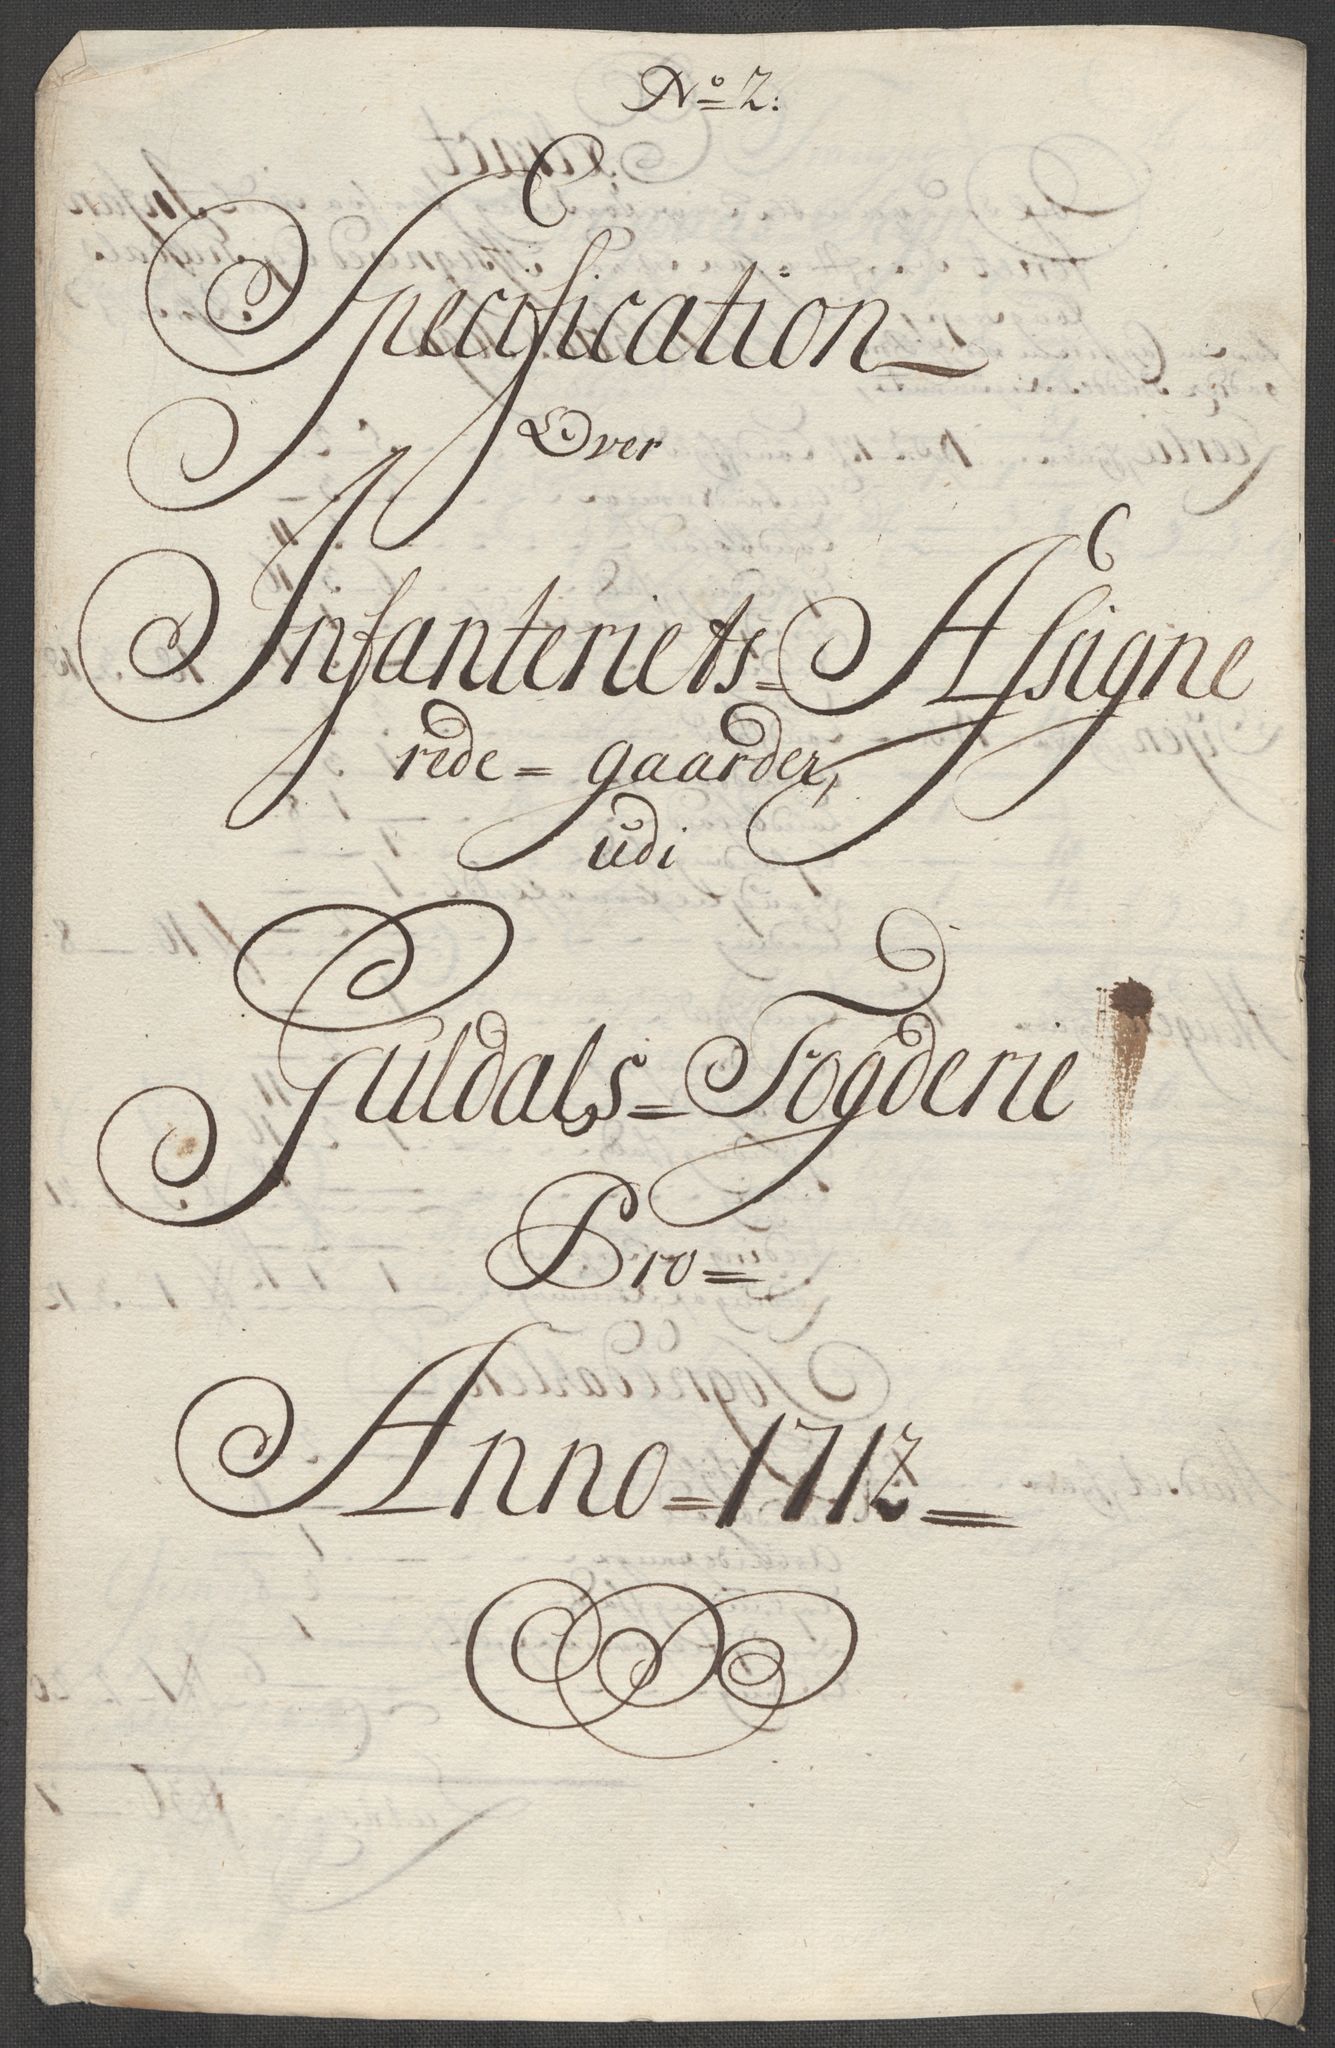 No 2:
Specification
Over
Infanteriets= Assigne
rede= gaarder,
udi
Guldals= Fogderie
Pro=
Anno= 1712=